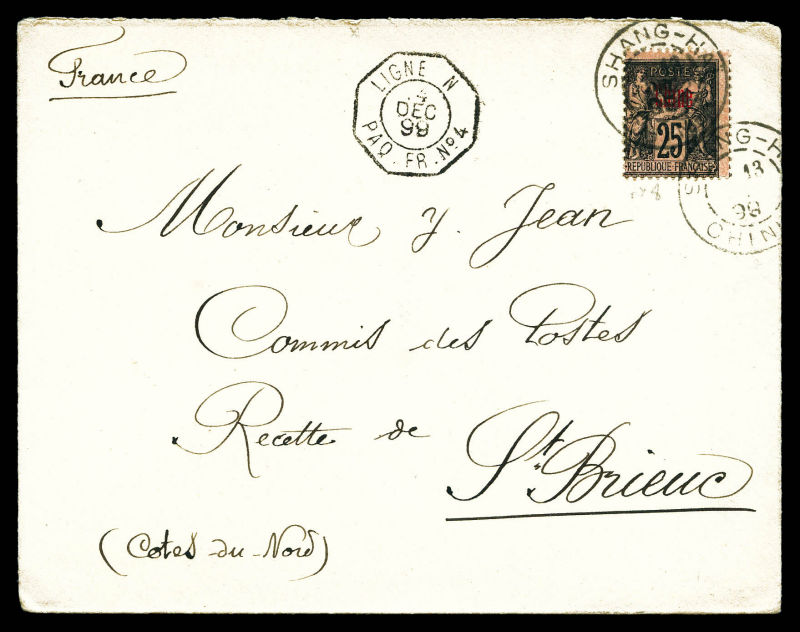 France
LIGNE N
DEC
99
PAQ. FR. No 4
SHANG-HAI
POSTES
Chine
25
REPUBLIQUE FRANÇAISE
SHANG-H
13
99
CHIN
Monsieur Y. Jean
Commis des Postes
Recette de St. Brieuc
(Cotes-du-Nord)